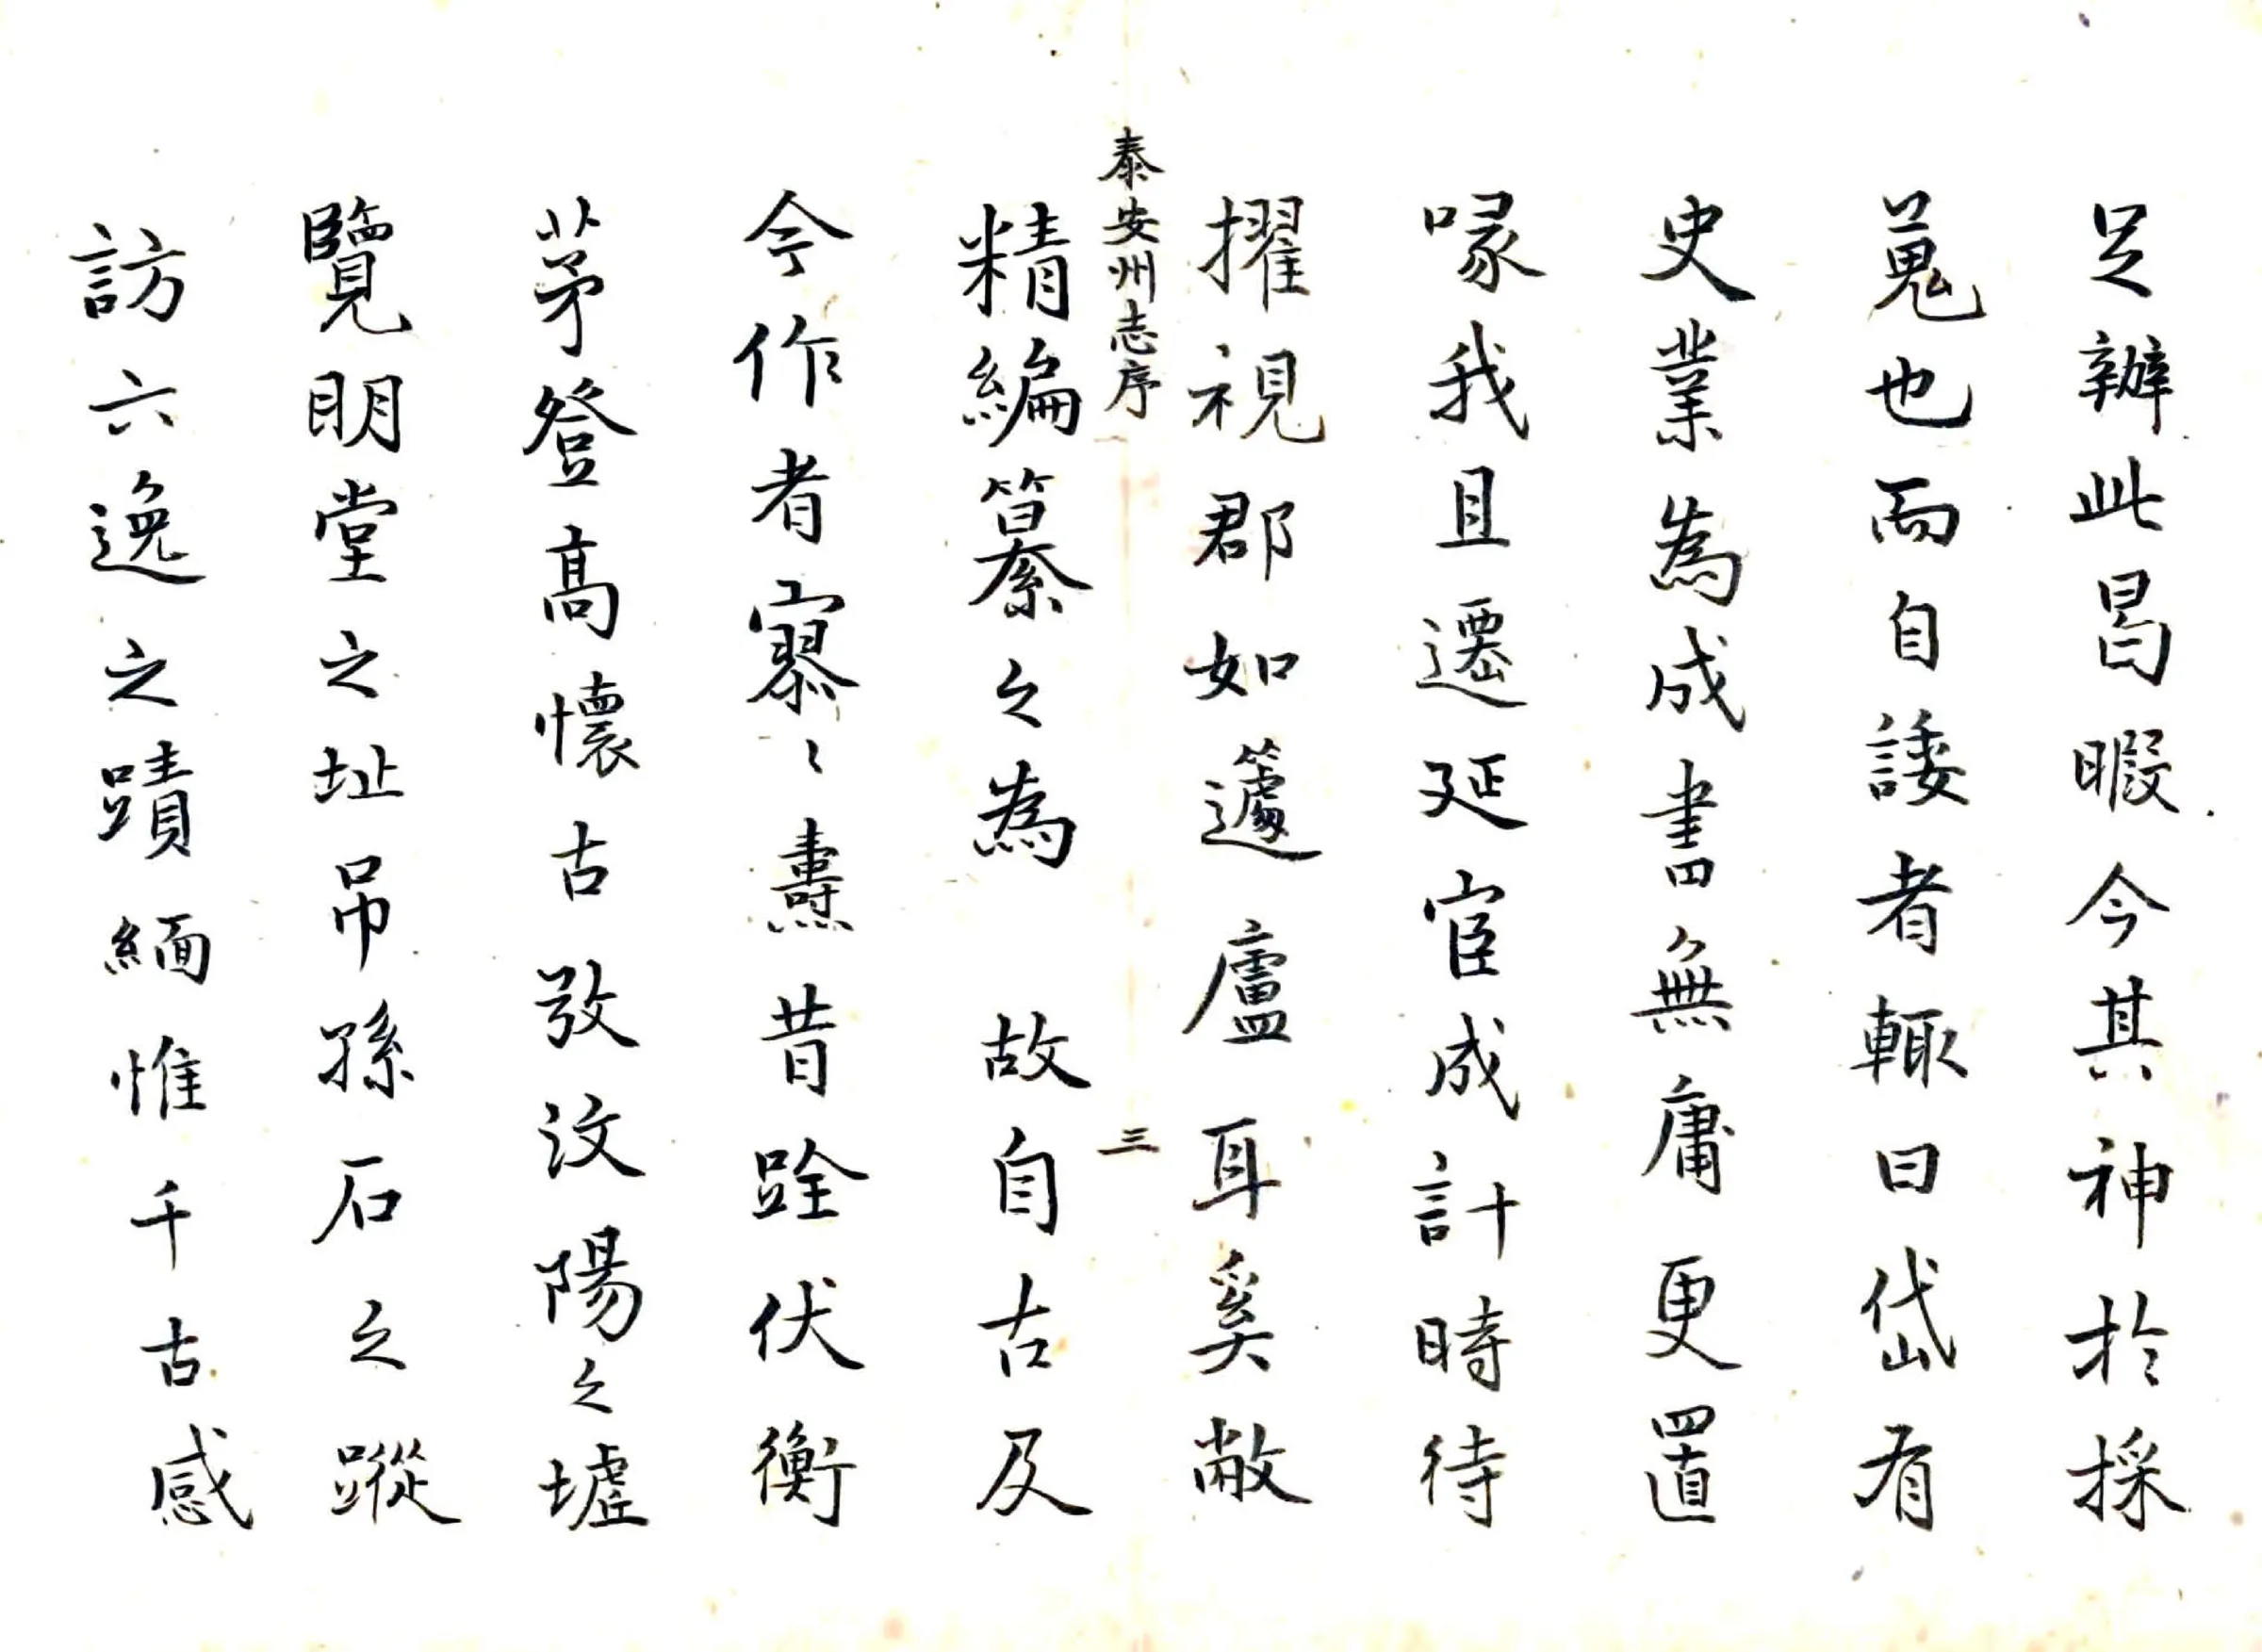 足辦此曷暇今其神於採
蒐也而自諉者輒曰岱有
史業為成書無庸更置
喙我且遷延宦成計時待
擢視郡如籧廬耳奚敝
泰安州志序 三
精編纂之為故自古及
今作者寥〻燾昔跧伏衡
茅登高懷古攷汶陽之墟
覽明堂之址吊孫石之蹤
訪六逸之蹟緬惟千古感